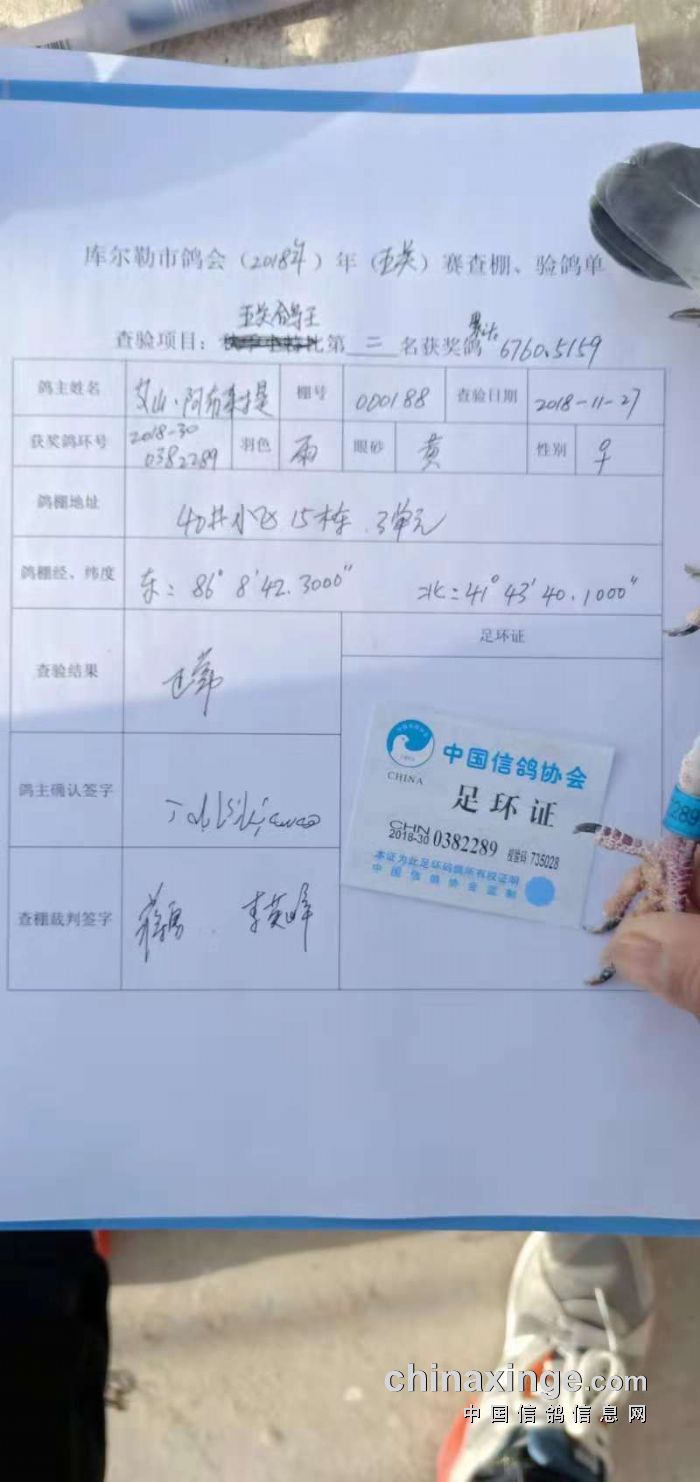 库尔勒市鸽会（2018年）年（ ）赛查棚、验鸽单
鸽王
查验项目： 第二名获奖鸽 累计: 6760.5159
鸽主姓名 艾山·阿布 提 棚号 000188 查验日期 2018-11-27
获奖鸽环号 2018-30 0382289 羽色 雨 眼砂 黄 性别 ♀
鸽棚地址 15栋 3单元
鸽棚经、纬度 东: 86° 8′42.3000″ 北:41°43′40.1000″
查验结果 正常
足环证
鸽主确认签字
查棚裁判签字
中国信鸽协会
CHINA
足环证
CHN
2018-30 0382289 校验码:735028
本证为此足环码鸽所有权证明
中国信鸽协会监制
289
chinaxinge.com
中国信鸽信息网